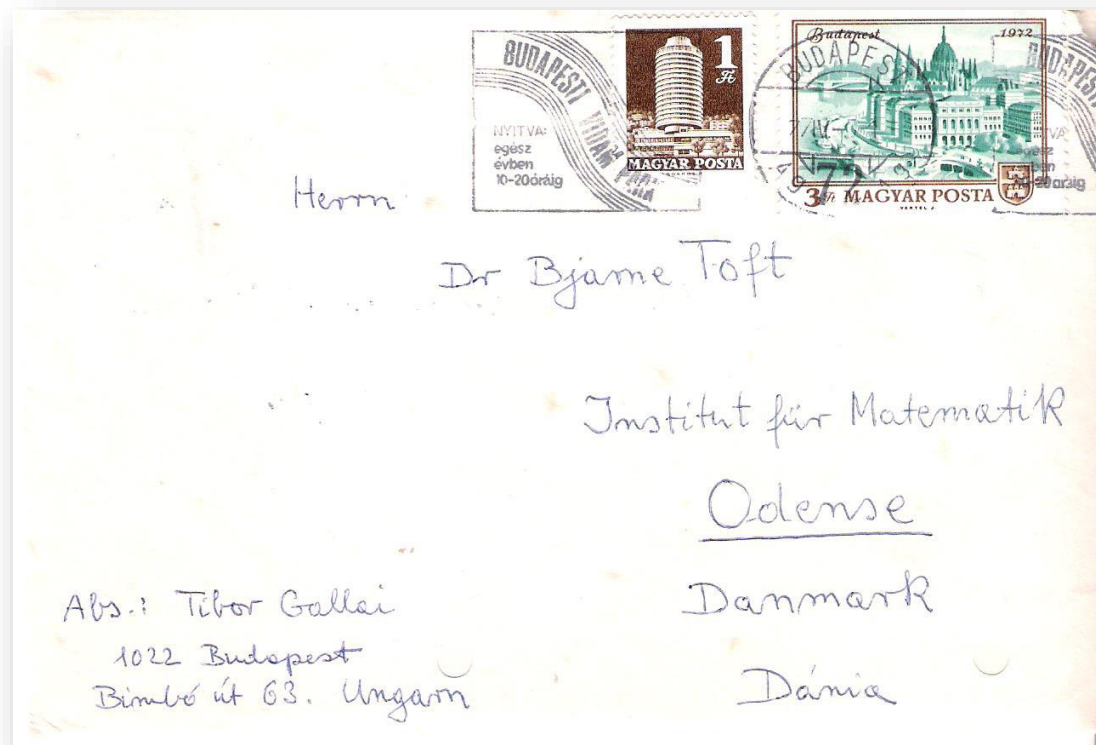 BUDAPEST VIDÁM PARK
NYITVA:
egész
évben
10-20 óráig
1
Ft
MAGYAR POSTA
BUDAPEST
72
Budapest 1972
3 Ft MAGYAR POSTA
VERTEL J.
BUDAPEST
10-20 óráig
Herrn
Dr Bjarne Toft
Institut für Matematik
Odense
Danmark
Dánia
Abs.: Tibor Gallai
1022 Budapest
Bimbó út 63. Ungarn